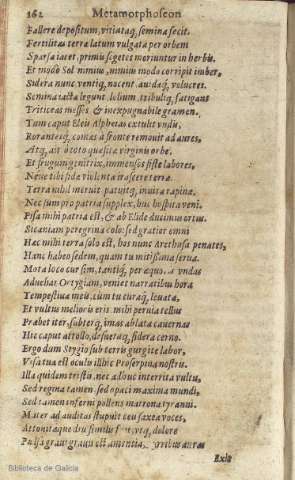 162 Metamorphoseon
Fallere depositum, vitiataq́; semina fecit.
Fertilitas terræ latum vulgata per orbem
Sparsa iacet, primis segetes moriuntur in herbis.
Et modò Sol nimius, nimius modo corripit imber,
Sidera nunc ventiq́; nocent, auidæq́; volucres
Semina iacta legunt, lolium, tribuliq́; fatigant
Triticeas messes & inexpugnabile gramen.
Tum caput Eleis Alpheias extulit vndis,
Rorantesq́; comas à fronte remouit ad aures,
Atq; ait ô toto quæsitæ virginis orbe,
Et frugum genitrix, immensos siste labores,
Neue tibi fidæ violenta irascere terræ.
Terra nihil meruit patuitq; inuita rapinæ.
Nec sum pro patria supplex, huc hospita veni.
Pisa mihi patria est, & ab Elide ducimus ortus.
Sicaniam peregrina colo: sed gratior omni
Hæc mihi terra solo est, hos nunc Arethusa penates,
Hanc habeo sedem, quam tu mitissima serua.
Mota loco cur sim, tantiq́; per æquoris vndas
Aduehar Ortygiam, veniet narratibus hora
Tempestiua meis, cum tu curaq́; leuata,
Et vultus melioris eris mihi peruia tellus
Præbet iter, subterq́; imas ablata cauernas
Hic caput attollo, desuetaq́; sidera cerno.
Ergo dum Stygio sub terris gurgite labor,
Visa tua est oculis illic Proserpina nostris.
Illa quidem tristis, nec adhuc interrita vultu,
Sed regina tamen, sed opaci maxima mundi,
Sed tamen inferni pollens matrona tyranni.
Mater ad auditas stupuit ceu saxea voces,
Attonitæque diu similis fuit, vtq́; dolore
Pulsa graui grauis est amentia, auras
Exit
Biblioteca de Galicia